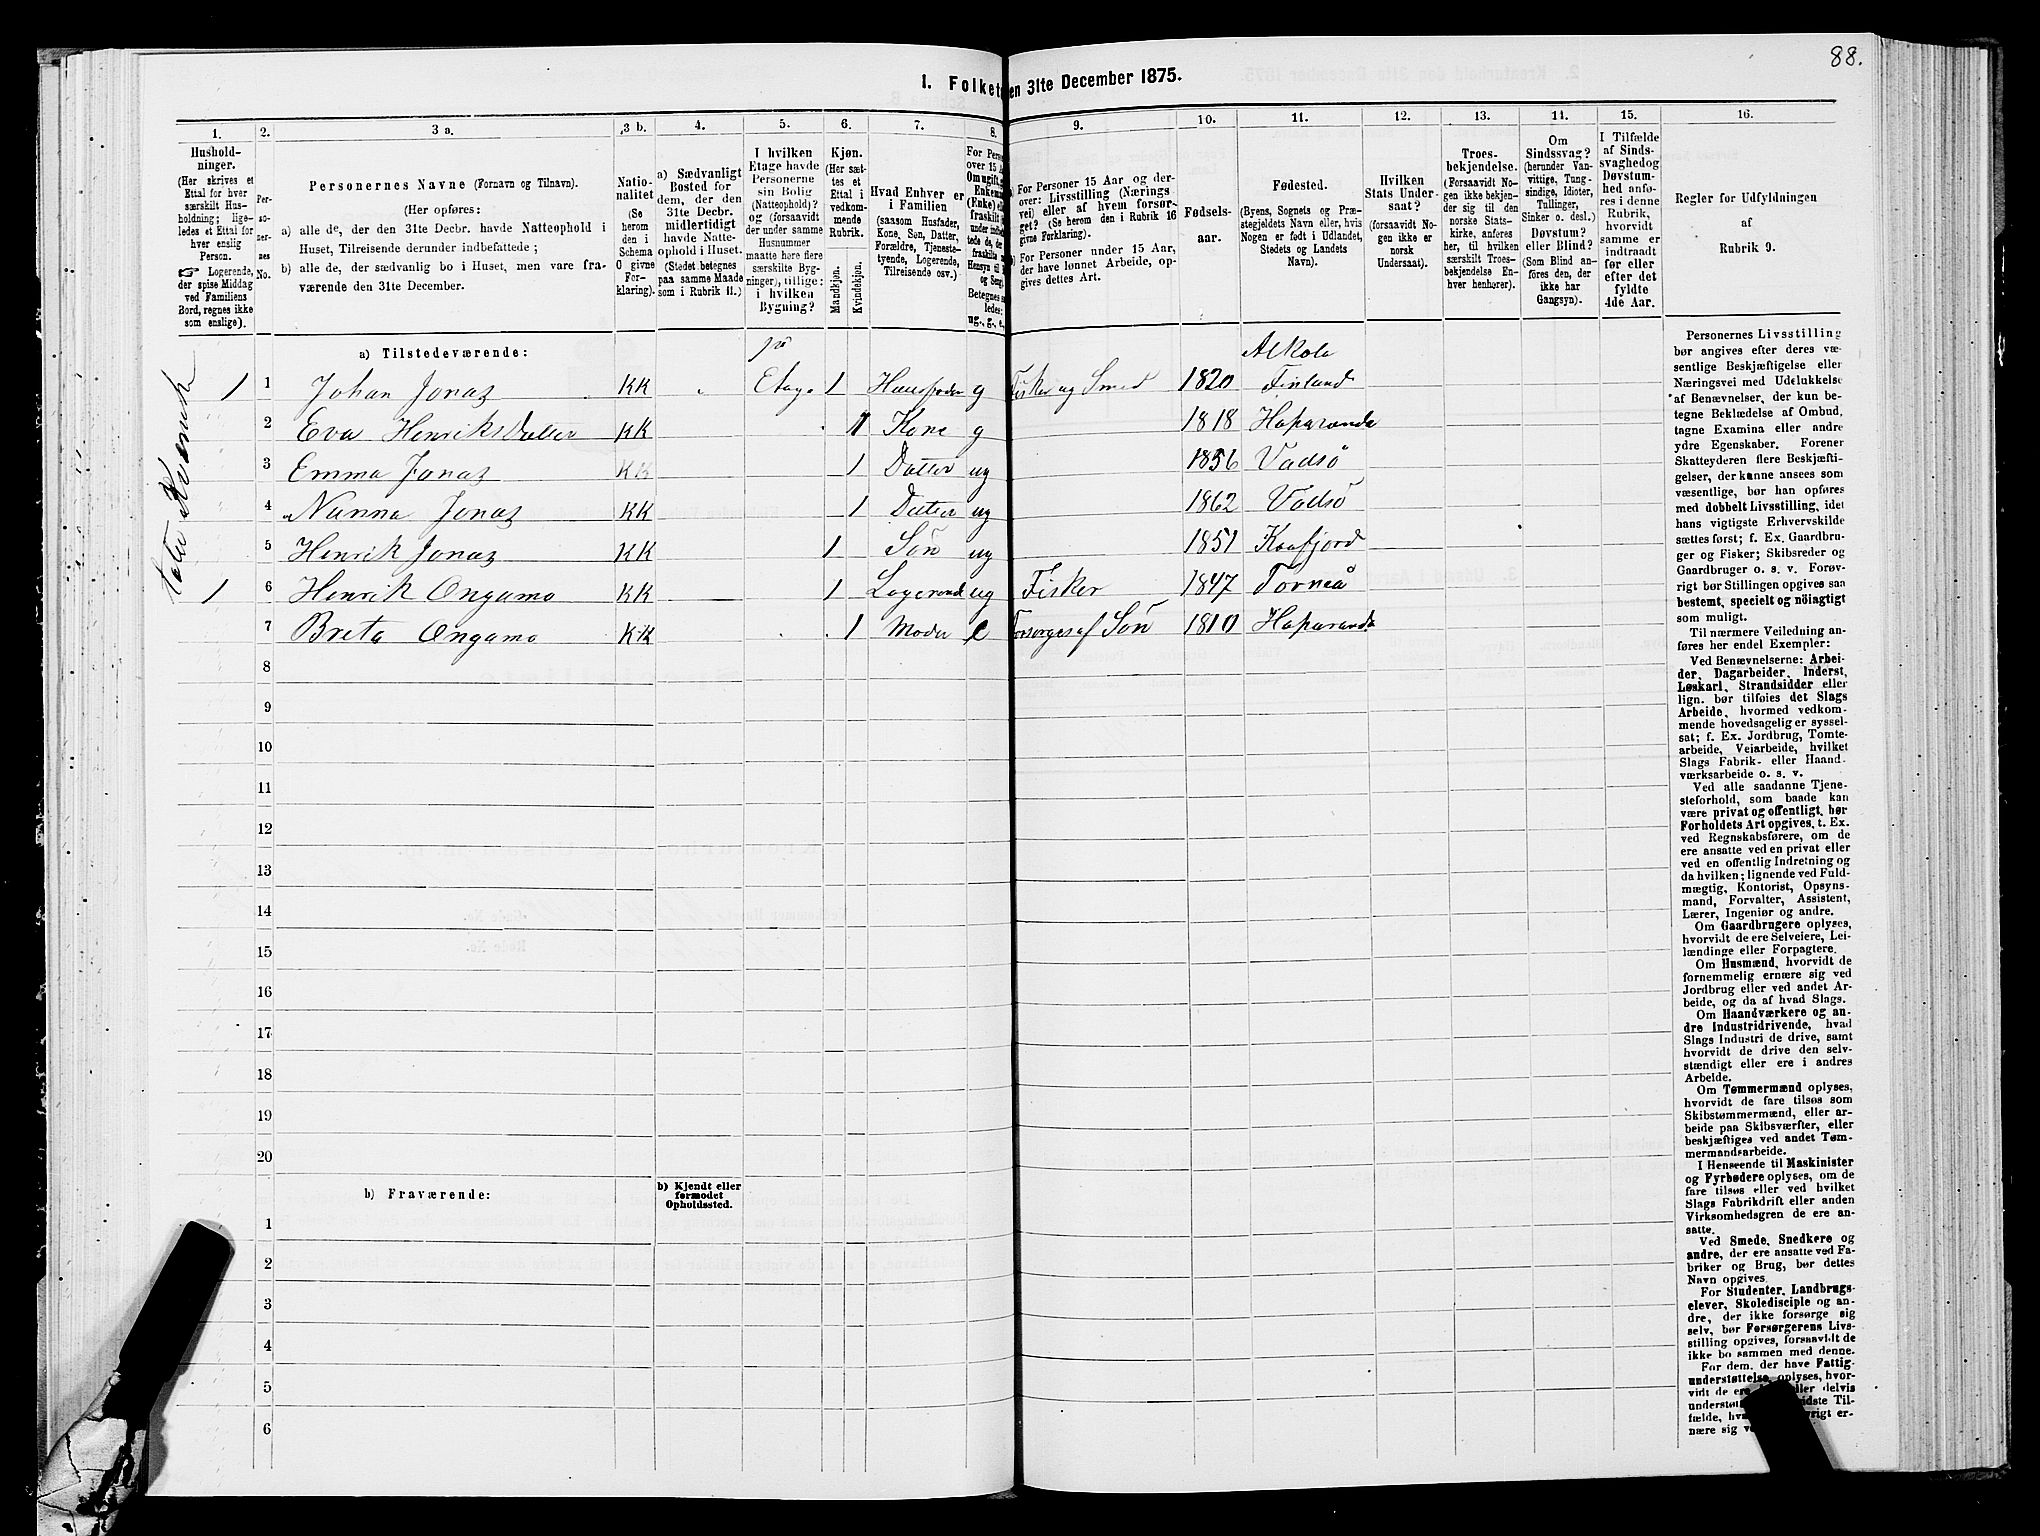 88.
1. Folket en 31te December 1875.
1. 2. 3 a. 3 b. 4. 5. 6. 7. 8. 9. 10. 11. 12. 13. 14. 15. 16.
Hushold-
ninger.
(Her skrives et
Ettal for hver
særskilt Hus-
holdning; lige-
ledes et Ettal for
hver enslig
Person.
☞ Logerende,
der spise Middag
ved Familiens
Bord, regnes ikke
som enslige).
Per-
so-
ner-
nes
No.
Personernes Navne (Fornavn og Tilnavn).
(Her opføres:
a) alle de, der den 31te Decbr. havde Natteophold i
Huset, Tilreisende derunder indbefattede;
b) alle de, der sædvanlig bo i Huset, men vare fra-
værende den 31te December.
Natio-
nalitet
(Se
herom
den i
Schema
O givne
For-
klaring).
a) Sædvanligt
Bosted for
dem, der den
31te Decbr.
midlertidigt
havde Natte-
ophold i Huset.
(Stedet betegnes
paa samme Maade
som i Rubrik 11.)
I hvilken
Etage havde
Personerne
sin Bolig
(Natteophold)?
og (forsaavidt
der under samme
Husnummer
maatte høre flere
særskilte Byg-
ninger), tillige:
i hvilken
Bygning?
Kjøn.
(Her sæt-
tes et
Ettal i
vedkom-
mende
Rubrik.
Mandkjøn.
Kvindekjøn.
Hvad Enhver er
i Familien
(saasom Husfader,
Kone, Søn, Datter,
Forældre, Tjeneste-
tyende, Logerende,
Tilreisende osv.)
For Perso
over 15 A
Om ugift, g
Enkem
(Enke) e
fraskilt
Betegnes s
ledes:
ug., g., e.,
a) For Personer 15 Aar og der-
over: Livsstilling (Nærings
vei) eller af hvem forsør-
get? (Se herom den i Rubrik 16
givne Forklaring).
b) For Personer under 15 Aar,
der have lønnet Arbeide, op-
gives dettes Art.
Fødsels-
aar.
Fødested.
(Byens, Sognets og Præ-
stegjeldets Navn eller, hvis
Nogen er født i Udlandet,
Stedets og Landets
Navn).
Hvilken
Stats Under-
saat?
(forsaavidt No-
gen ikke er
norsk
Undersaat).
Troes-
bekjendelse.
(Forsaavidt No-
gen ikke bekjen-
der sig til den
norske Stats-
kirke, anføres
her, til hvilken
særskilt Troes-
bekjendelse En-
hver henhører).
Om
Sindssvag?
(herunder Van-
vittige, Tung-
sindige, Idioter,
Tullinger,
Sinker o. desl.)
Døvstum?
eller Blind?
(Som Blind an-
føres den, der
ikke har
Gangsyn).
I Tilfælde
af Sinds-
svaghed og
Døvstum-
hed anfø-
res i denne
Rubrik,
hvorvidt
samme er
indtraadt
før eller
efter det
fyldte
4de Aar.
Regler for Udfyldningen
af
Rubrik 9.
a) Tilstedeværende:
1 1 Johan Jonas KK Etage 1 Huusfader g Fisker og Smed 1820 Finland
2 Eva Henriksdatter KK 1 Kone g 1818 Haparanda
3 Emma Jonas KK 1 Datter ug 1856 Vadsö
4 Nanna Jonas KK 1 Datter ug 1862 Vadsö
5 Henrik Jonas KK 1 Sön ug 1851 Kaafjord
1 6 Henrik Ongamo KK 1 Logerende ug Fisker 1847 Torneå
7 Breta Ongamo KK 1 Moder e Forsørges af Sön 1810 Haparanda
8
9
10
11
12
13
14
15
16
17
18
19
20
b) Fraværende:
b) Kjendt eller
formodet
Opholdssted.
1
2
3
4
5
6
Personernes Livsstilling
bør angives efter deres væ-
sentlige Beskjæftigelse eller
Næringsvei med Udelukkelse
af Benævnelser, der kun be-
tegne Beklædelse af Ombud,
tagne Examina eller andre
ydre Egenskaber. Forener
Skatteyderen flere Beskjæfti-
gelser, der kunne ansees som
væsentlige, bør han opføres
med dobbelt Livsstilling, idet
hans vigtigste Erhvervskilde
sættes først; f. Ex. Gaardbru-
ger og Fisker; Skibsreder og
Gaardbruger o. s. v. Forøv-
rigt bør Stillingen opgives saa
bestemt, specielt og nøiagtigt
som muligt.
Til nærmere Veiledning an-
føres her endel Exempler:
Ved Benævnelserne: Arbei-
der, Dagarbeider, Inderst,
Løskarl, Strandsidder eller
lign. bør tilføies det Slags
Arbeide, hvormed vedkom-
mende hovedsagelig er syssel-
sat; f. Ex. Jordbrug, Tomte-
arbeide, Veiarbeide, hvilket
Slags Fabrik- eller Haand-
værksarbeide o. s. v.
Ved alle saadanne Tjene-
steforhold, som baade kan
være privat og offentligt, bør
Forholdets Art opgives, t. Ex.
ved Regnskabsførere, om de
ere ansatte ved en privat eller
ved en offentlig Indretning og
da hvilken; lignende ved Fuld-
mægtig, Kontorist, Opsyns-
mand, Forvalter, Assistent,
Lærer, Ingeniør og andre.
Om Gaardbrugere oplyses,
hvorvidt de ere Selveiere, Lei-
lændinge eller Forpagtere.
Om Husmænd, hvorvidt de
fornemmelig ernære sig ved
Jordbrug eller ved andet Ar-
beide, og da af hvad Slags.
Om Haandværkere og an-
dre Industridrivende, hvad
Slags Industri de drive, samt
hvorvidt de drive den selv-
stændigt eller ere i andres
Arbeide.
Om Tømmermænd oplyses,
hvorvidt de fare tilsøs som
Skibstømmermænd, eller ar-
beide paa Skibsværfter, eller
beskjæftiges ved andet Tøm-
mermandsarbeide.
I Henseende til Maskinister
og Fyrbødere oplyses, om de
fare tilsøs eller ved hvilket
Slags Fabrikdrift eller anden
Virksomhedsgren de ere an-
satte.
Ved Smede, Snedkere og
andre, der ere ansatte ved Fa-
briker og Brug, bør dettes
Navn opgives.
For Studenter, Landbrugs-
elever, Skoledisciple og an-
dre, der ikke forsørge sig
selv, bør Forsørgerens Livs-
stilling opgives, forsaavidt de
ikke bo sammen med denne.
For dem, der have Fattig-
understøttelse, oplyses, hvor-
vidt de ere eller delvis
underst idste Til-
fælde, hv vrigt er-
nære sig v